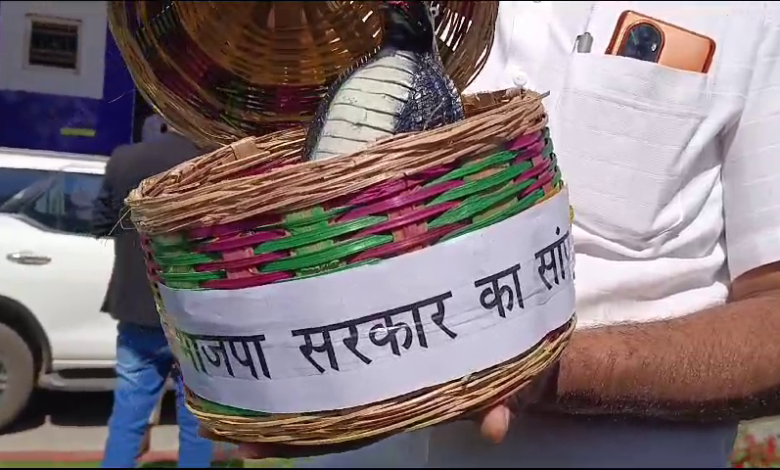 भाजपा सरकार का सांप